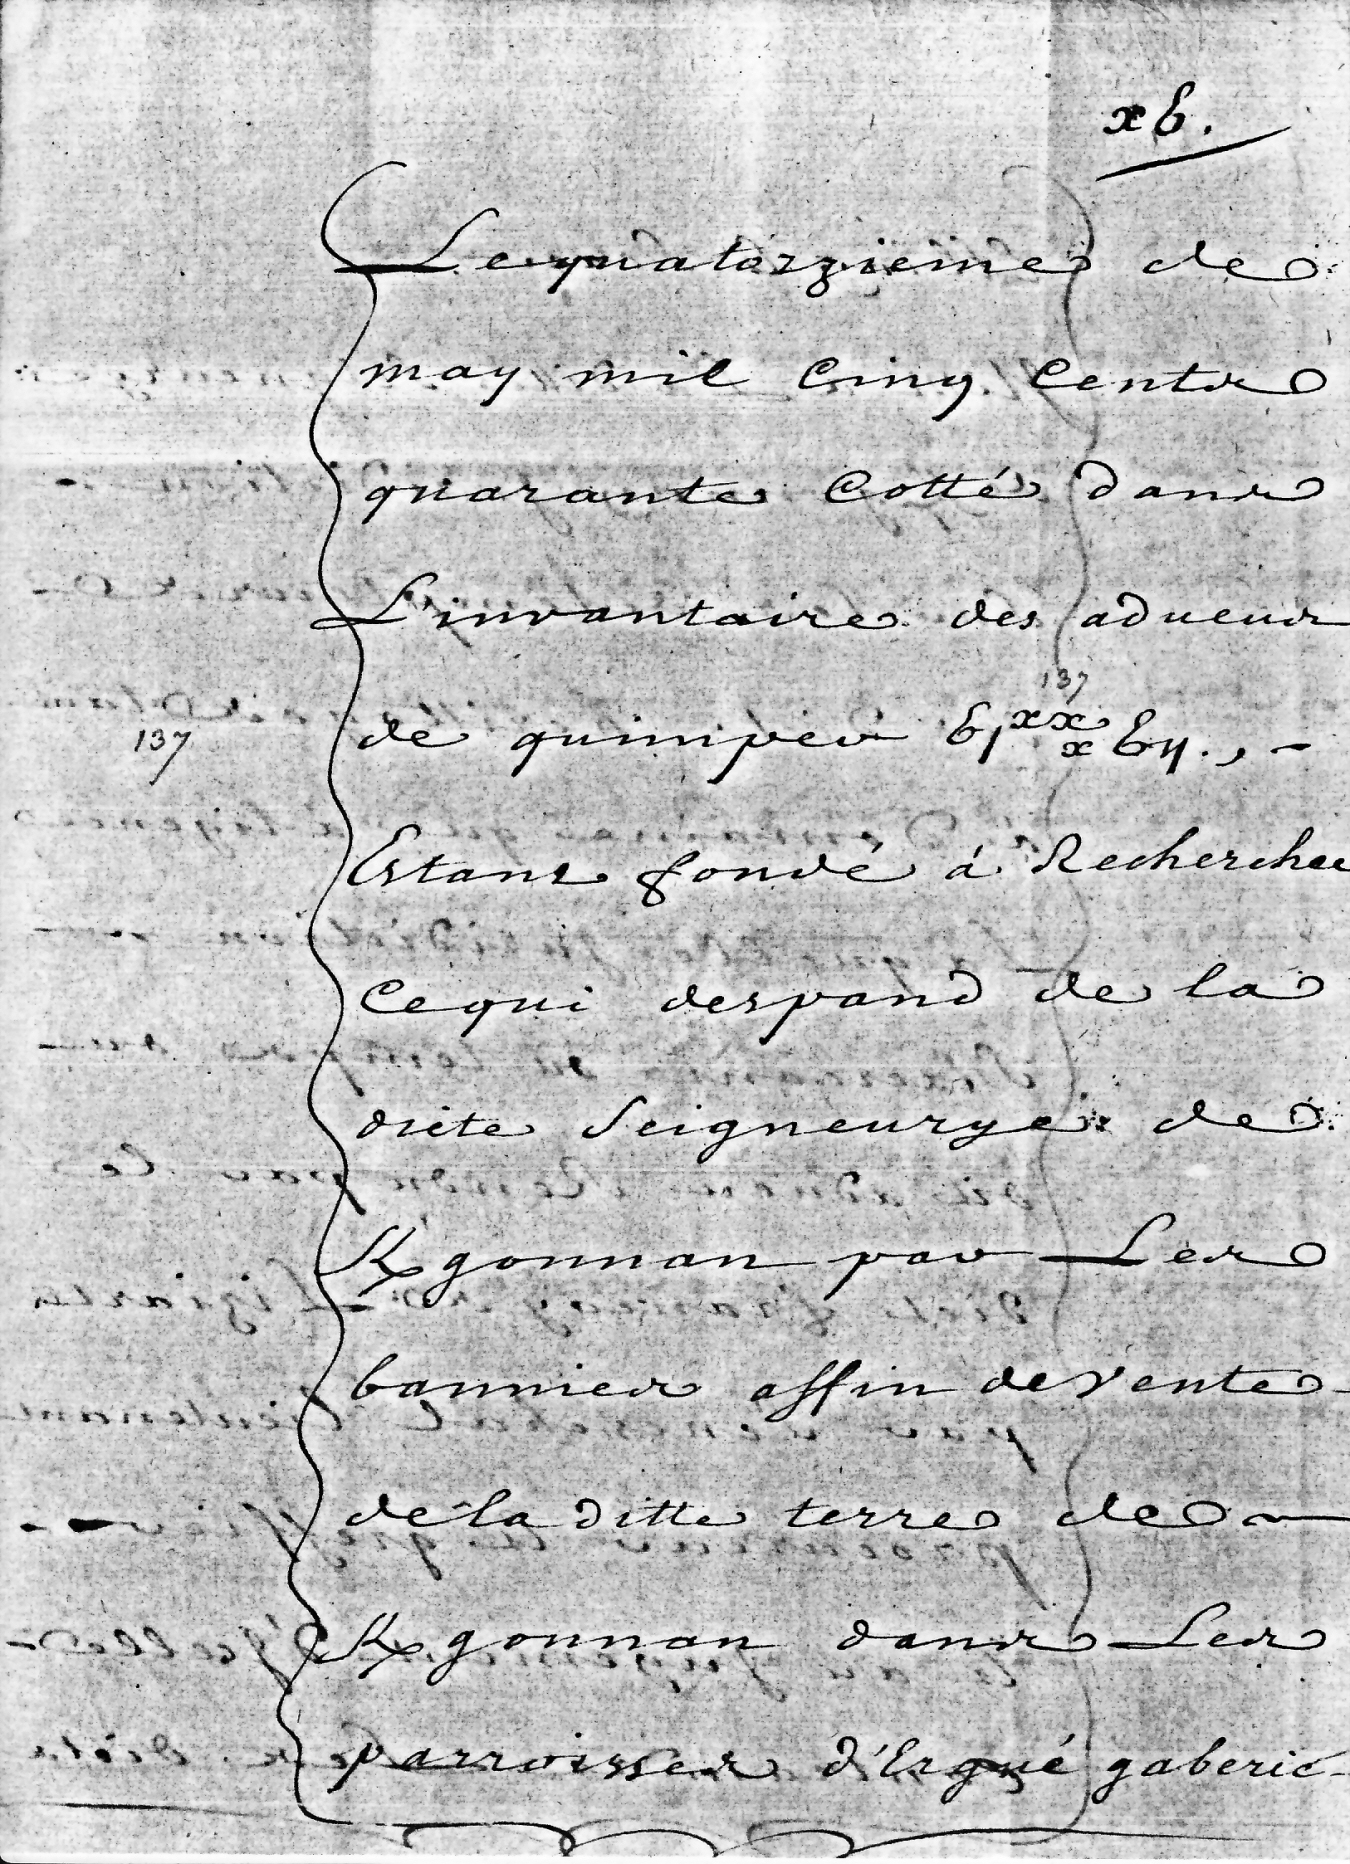 xb.
Le quatorzieme de
may mil cinq centz
quarante cotté dans
L'invantaire des adueus
137
137 de quimper bj xx xbij., -
Estans fondé á Rechercher
ce qui despand de la
dicte Seigneurye de
K/gonnan par Les
bannies affin de vente
de la ditte terre de
K/gonnan dans Les
parroisses d'Ergué gaberic